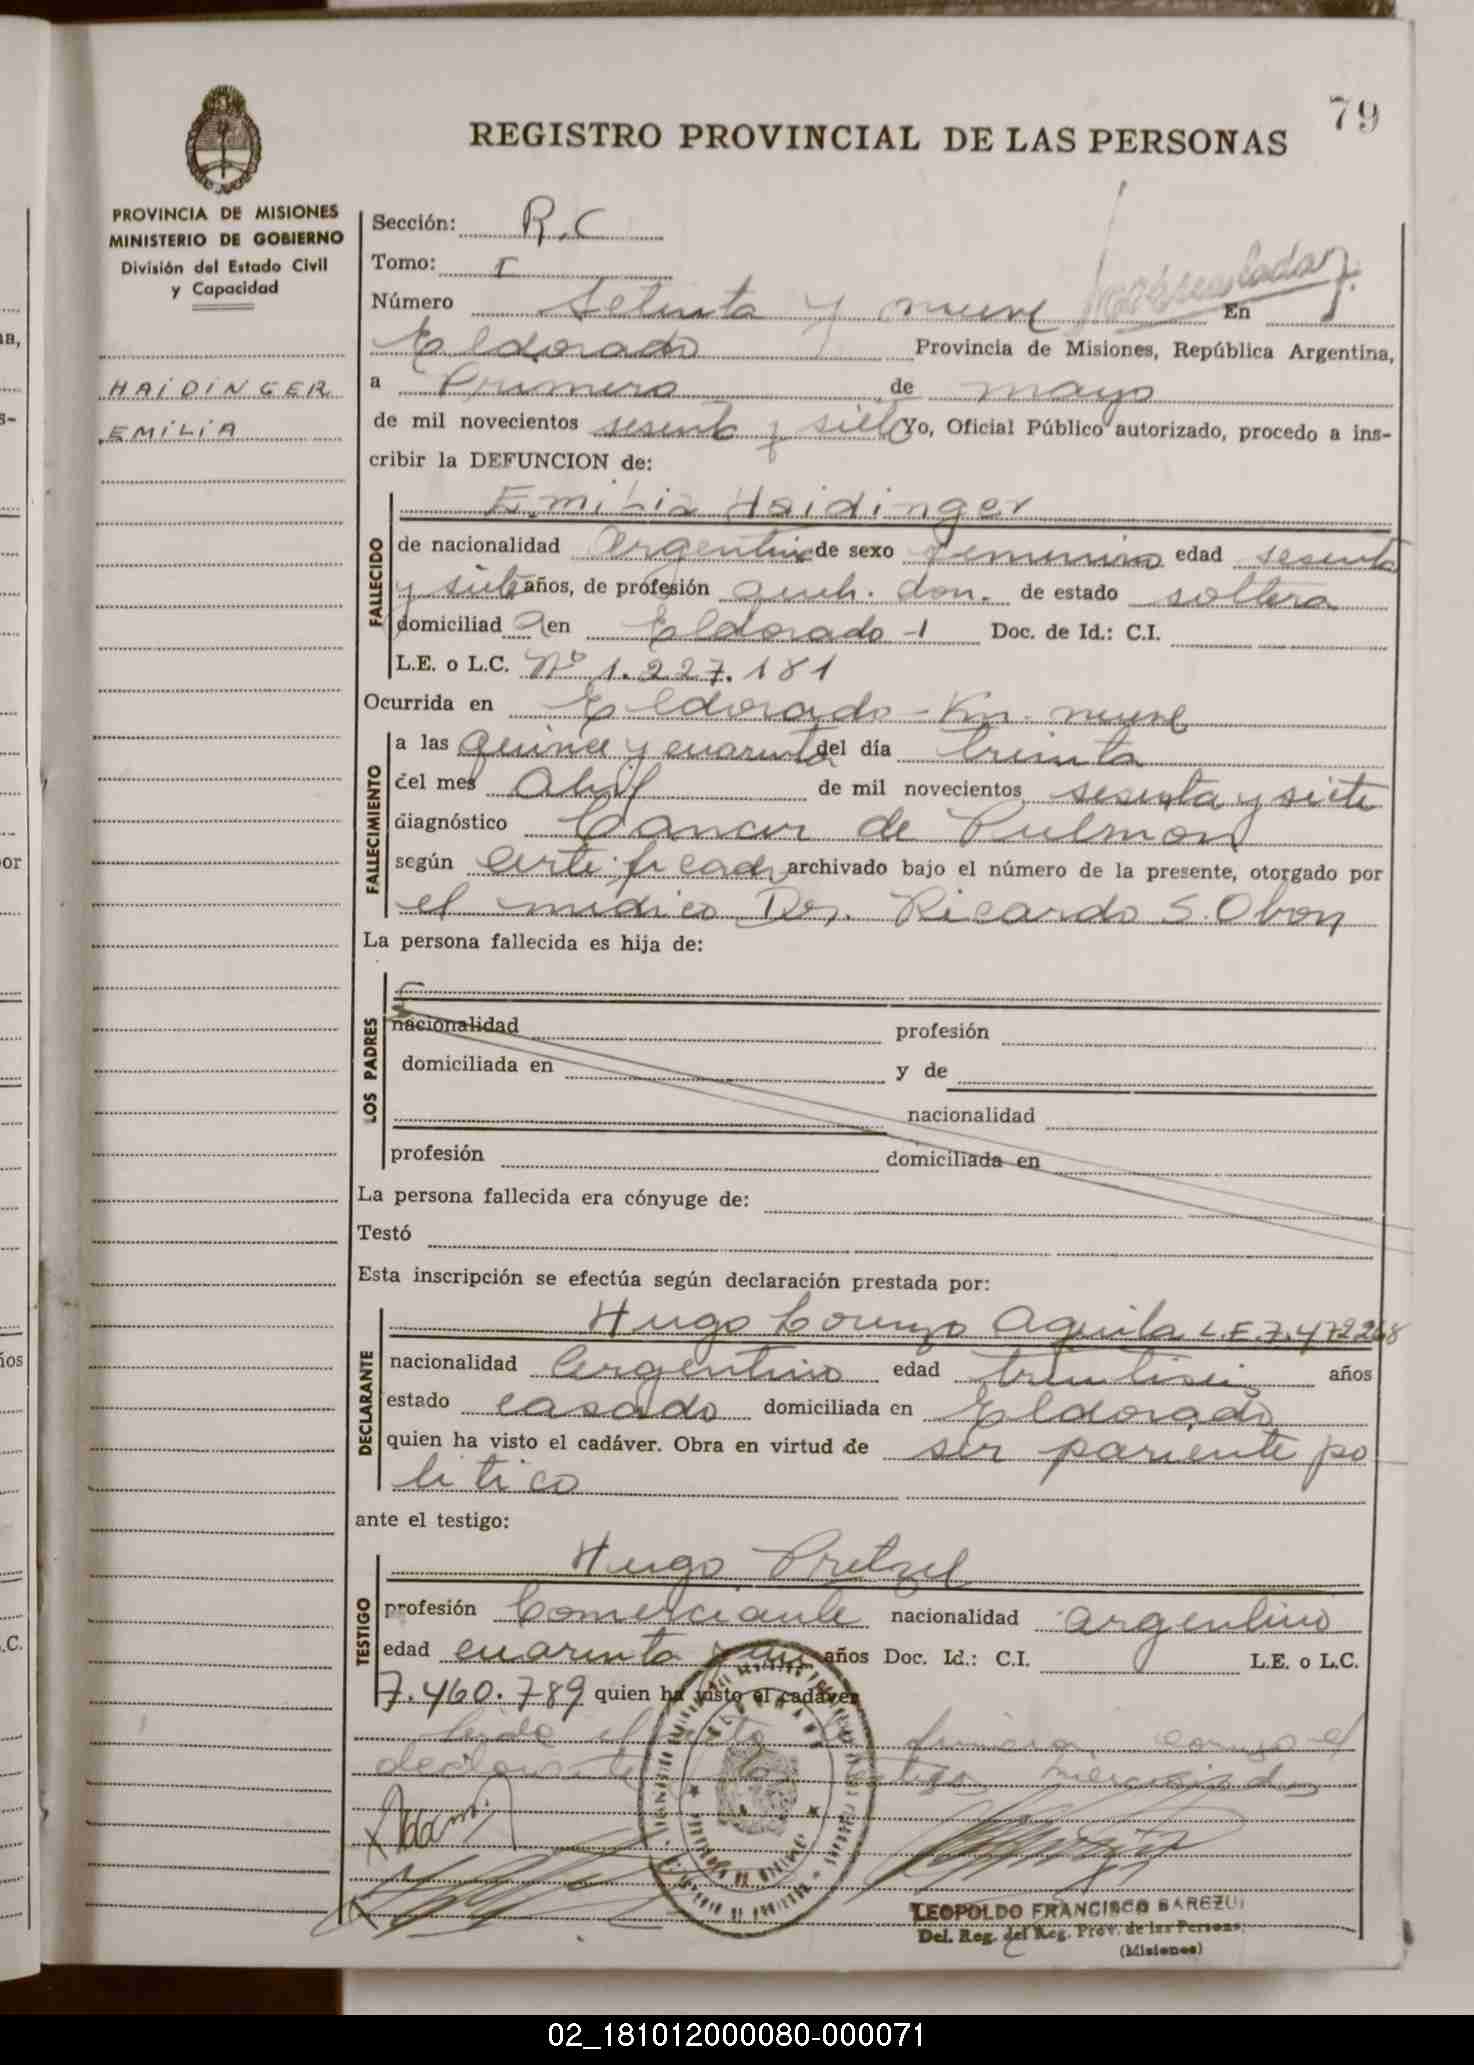 79
REGISTRO PROVINCIAL DE LAS PERSONAS
PROVINCIA DE MISIONES
MINISTERIO DE GOBIERNO
División del Estado Civil
y Capacidad
HAIDINGER
EMILIA
Sección: R.C
Tomo: I
Número Setenta y nueve En
Eldorado Provincia de Misiones, República Argentina,
a Primero de mayo
de mil novecientos sesenta y siete Yo, Oficial Público autorizado, procedo a ins-
cribir la DEFUNCION de:
FALLECIDO
Emilia Haidinger
de nacionalidad Argentina de sexo femenino edad sesenta
y siete años, de profesión queh. dom. de estado soltera
domiciliad a en Eldorado -1 Doc. de Id.: C.I.
L.E. o L.C. Nº 1.227.181
Ocurrida en Eldorado - Km. nueve
FALLECIMIENTO
a las quince y cuarenta del día treinta
del mes Abril de mil novecientos sesenta y siete
diagnóstico Cancer de Pulmon
según certificado archivado bajo el número de la presente, otorgado por
el medico Dr. Ricardo S. Obon
La persona fallecida es hija de:
LOS PADRES
nacionalidad profesión
domiciliada en y de
nacionalidad
profesión domiciliada en
La persona fallecida era cónyuge de:
Testó
Esta inscripción se efectúa según declaración prestada por:
DECLARANTE
Hugo Lorenzo Aguila L.E.7.472268
nacionalidad Argentino edad años
estado casado domiciliada en Eldorado
quien ha visto el cadáver. Obra en virtud de ser pariente po
litico
ante el testigo:
TESTIGO
Hugo Pretzel
profesión Comerciante nacionalidad argentino
edad cuarenta y años Doc. Id.: C.I. L.E. o L.C.
7.460.789 quien ha visto el cadáver
Leida el acta la firman conmigo el
declarante y testigo mencionados
LEOPOLDO FRANCISCO BAREZUI
Del. Reg. del Reg. Prov. de las Personas
(Misiones)
02_181012000080-000071